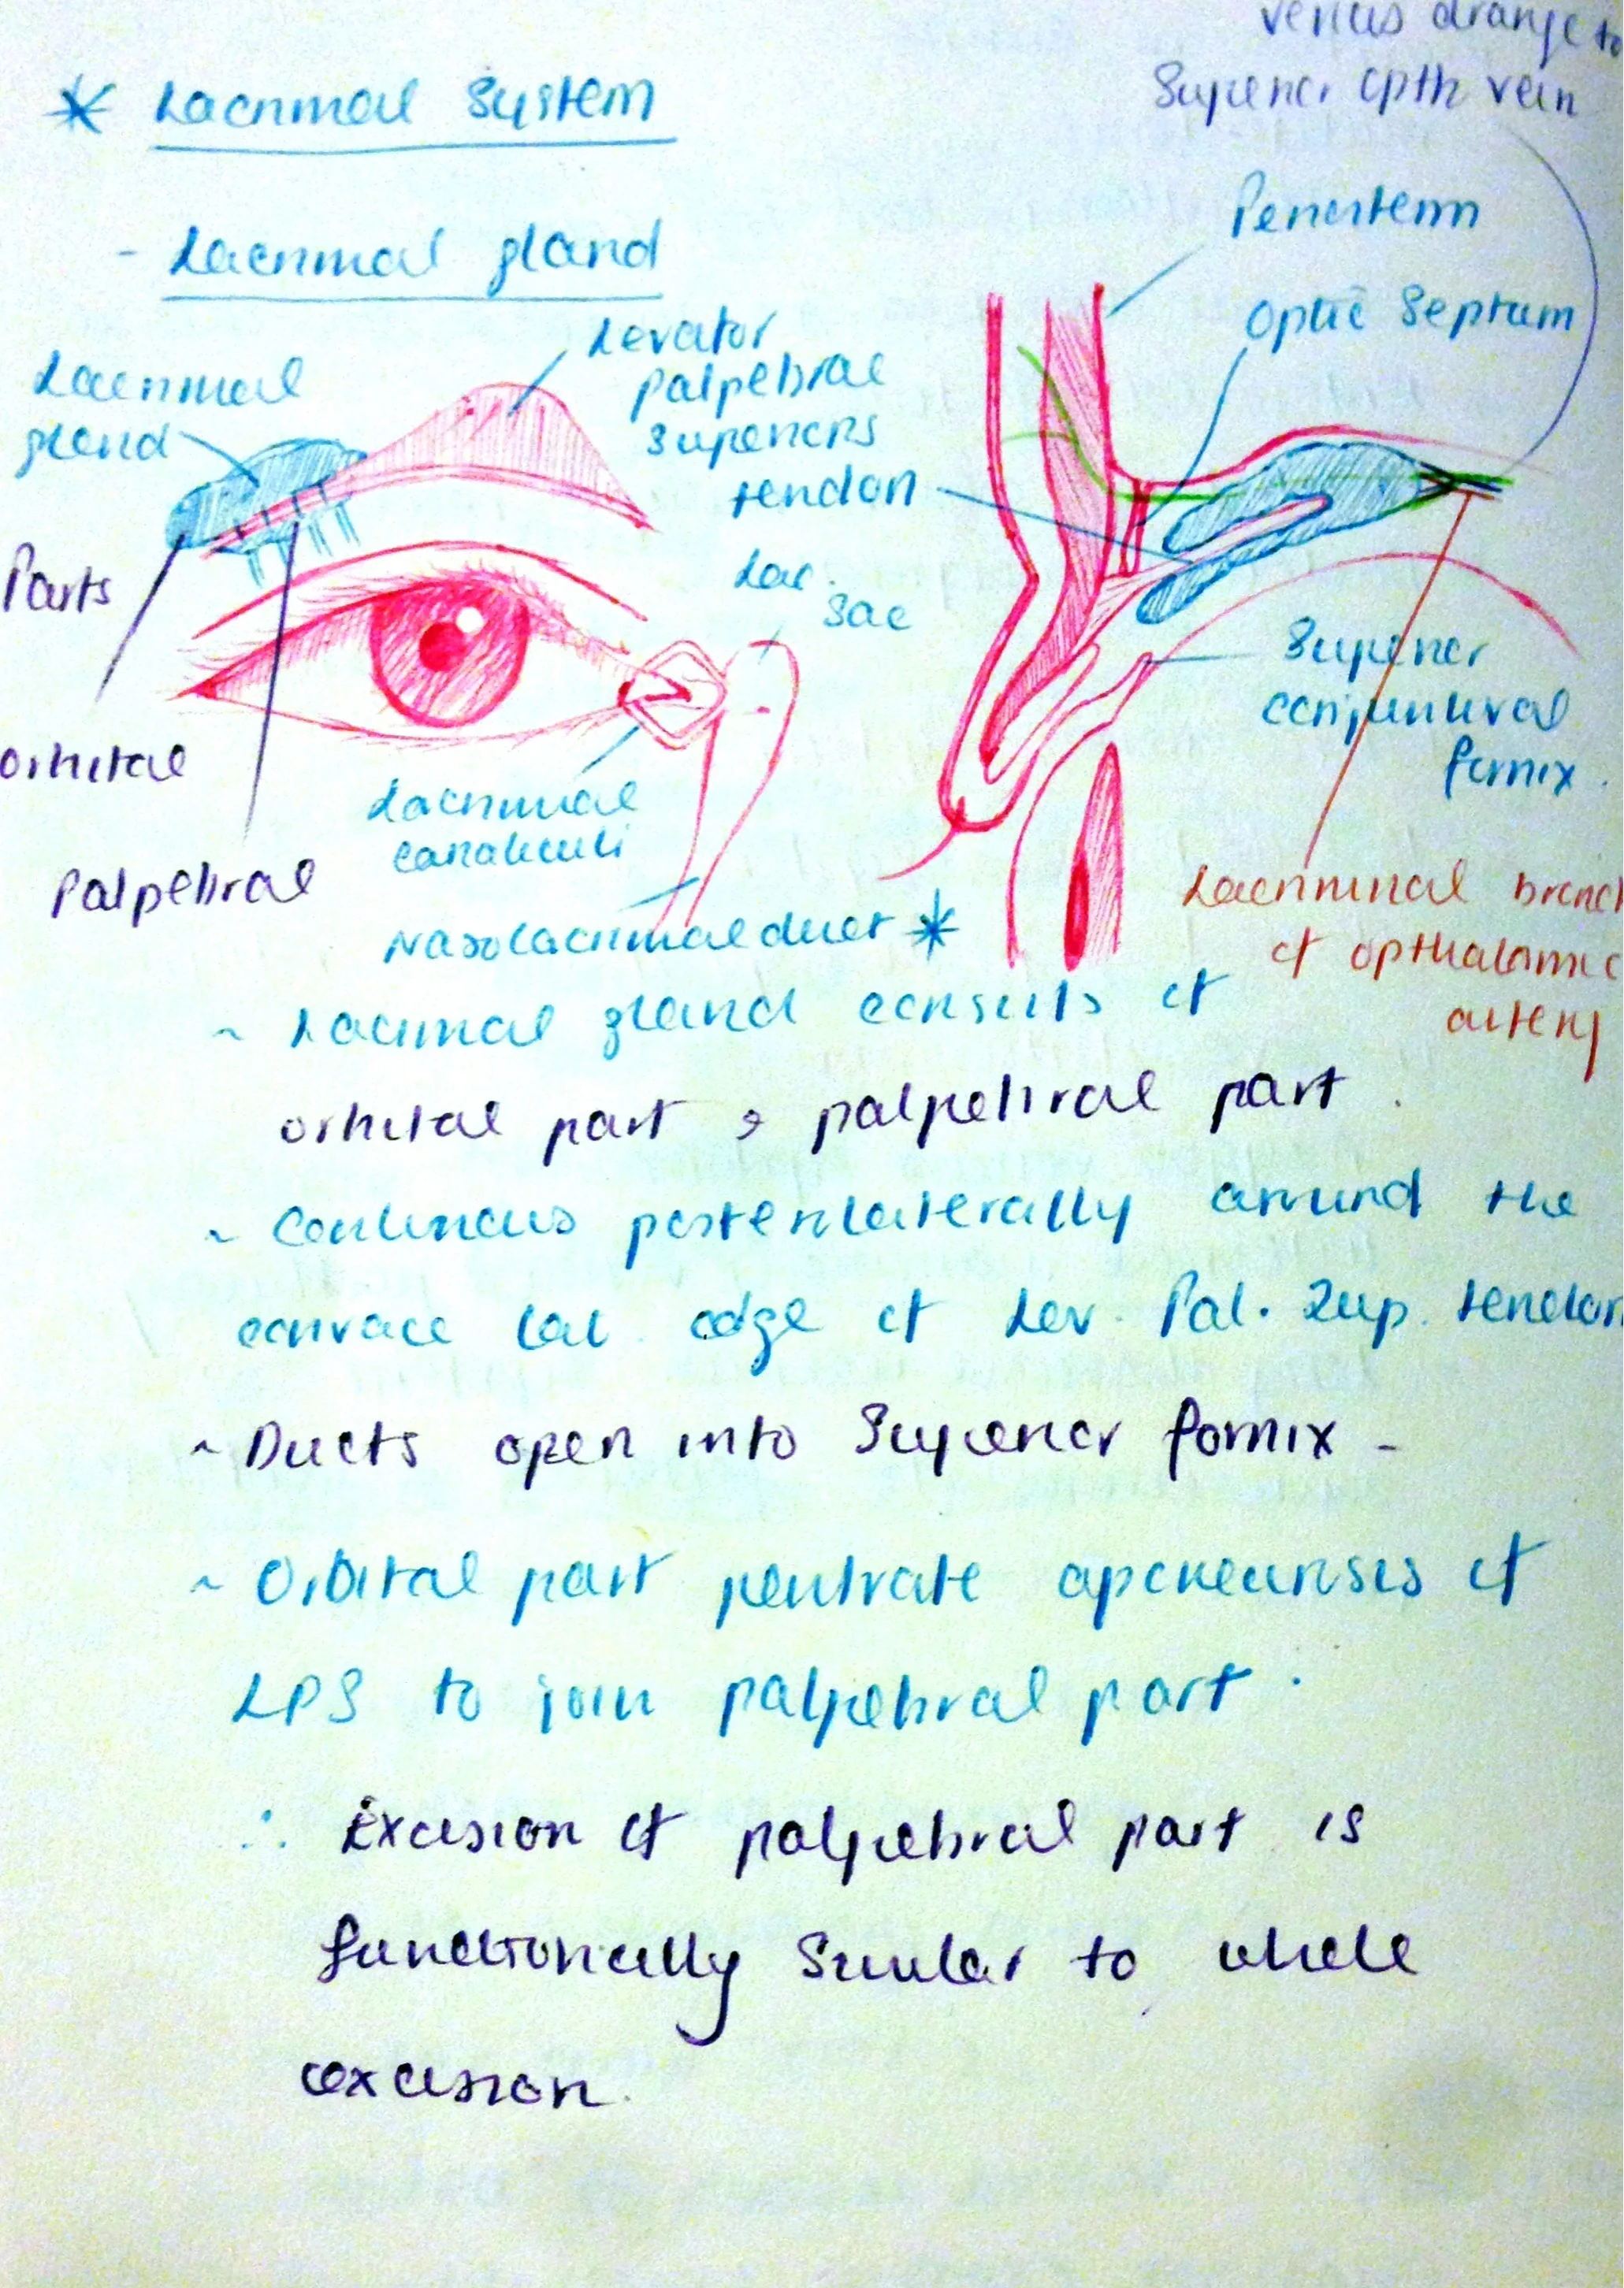 venus drange to
Superior opth vein
* Lacrimal System
- Lacrimal gland
Periosteum
Optic Septum
Levator
palpebral
superioris
tendon
Lacrimal
gland
Parts
Lac.
Sac
orbital
Palpebral
Lacrimal
canaliculi
Nasolacrimal duct *
Superior
conjuntival
fornix.
Lacriminal branch
of opthalamic
artery
~ Lacrimal gland consists of
orbital part & palpebral part.
~ Continous posterolaterally around the
concave lat. edge of Lev. Pal. Sup. tendon
~ Ducts open into Superior fornix -
~ Orbital part pentrate aponeurosis of
LPS to join palpebral part.
∴ Excision of palpebral part is
functionally similar to whole
excision.